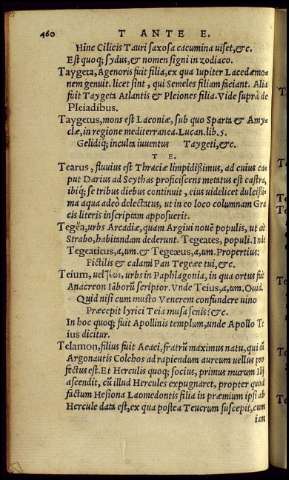 460 T ANTE E.
Hinc Cilicis Tauri saxosa cacumina viset, &c.
Est quoq; sydus, & nomen signi in zodiaco.
Taygeta, Agenoris fuit filia, ex qua Iupiter Lacedæmo
nem genuit. licet sint, qui Semeles filiam faciant. Alia
fuit Taygeta Atlantis & Pleiones filia. Vide suprà de
Pleiadibus.
Taygetus, mons est Laconiæ, sub quo Sparta & Amy
clæ, in regione mediterranea. Lucan. lib. 5.
Gelidiq; inculta iuuentus Taygeti, &c.
T E.
Tearus, fluuius est Thraciæ limpidissimus, ad cuius ca
put Darius ad Scythas proficiscens metatus est castra,
ibiq; se tribus diebus continuit, eius videlicet dulcissi-
ma aqua adeò delectatus, ut in eo loco columnam Græ
cis literis inscriptam apposuerit.
Tegea, urbs Arcadiæ, quam Argiui nouē populis, ut ait
Strabo, habitandam dederunt. Tegeates, populi. Inde
Tegeaticus, a, um. & Tegeæus, a, um. Propertius:
Fictilis & calami Pan Tegeæe tui, &c.
Teium, uel urbs in Paphlagonia, in qua ortus fuit
Anacreon Iāborū scriptor. Vnde Teius, a, um. Ouid.
Quid nisi cum musto Venerem confundere uino
Præcepit lyrici Teia musa senis: &c.
In hoc quoq; fuit Apollinis templum, unde Apollo Te
ius dicitur.
Telamon, filius fuit Aeaci, fratrū maximus natu, qui cū
Argonautis Colchos ad rapiendum aureum uellus pro
fectus est. Et Herculis quoq; socius, primus murum Ilij
ascendit, cū illud Hercules expugnaret, propter quod
factum Hesiona Laomedontis filia in præmium ipsi ab
Hercule data est, ex qua postea Teucrum suscepit, cum
iam